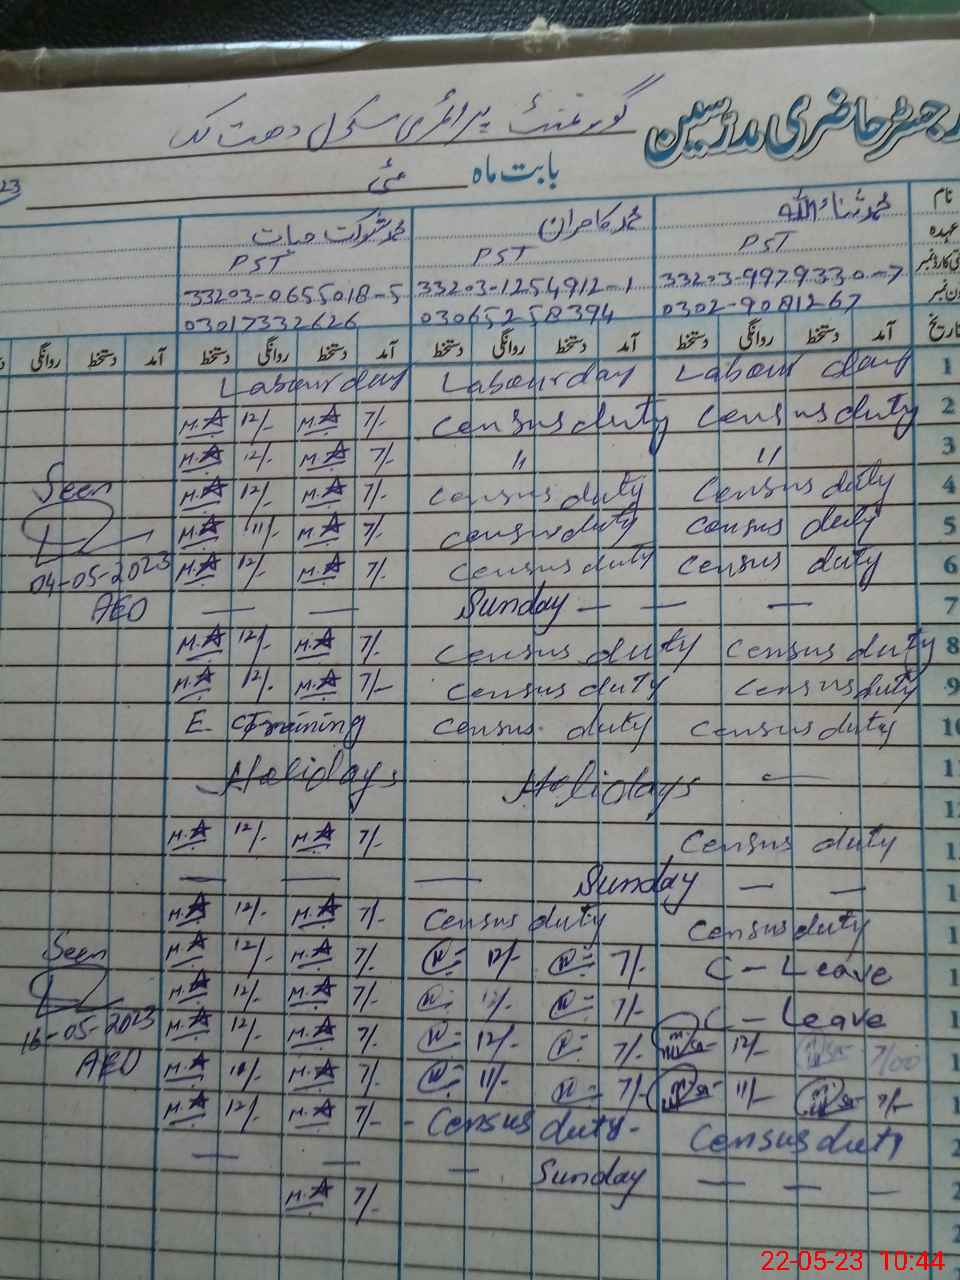 رجسٹر حاضری مدرسین گورنمنٹ پرائمری سکول
بابت ماہ مئی 23
نام محمد ثناء اللہ محمد کامران محمد شوکت حیات
عہدہ PST PST PST
33203-9979330-7 33203-1254912-1 33203-0655018-5
0302-9081267 03065258394 03017332626
تاریخ آمد دستخط روانگی دستخط آمد دستخط روانگی دستخط آمد دستخط روانگی دستخط آمد دستخط روانگی
Labour day Labour day Labour day 1
M.A 12/- M.A 7/- Census duty Census duty 2
M.A 12/- M.A 7/- 〃 〃 3
Seen M.A 12/- M.A 7/- Census duty Census duty 4
M.A 11/- M.A 7/- Census duty Census duty 5
04-05-2023 M.A 12/- M.A 7/- Census duty Census duty 6
AEO — — Sunday — — — 7
M.A 12/- M.A 7/- Census duty Census duty 8
M.A 12/- M.A 7/- Census duty Census duty 9
E. C Training Census duty Census duty 10
Holidays Holidays —
M.A 12/- M.A 7/- Census duty
— — — Sunday — —
M.A 12/- M.A 7/- Census duty Census duty
Seen M.A 12/- M.A 7/- 12/- 7/- C - Leave
M.A 12/- M.A 7/- 12/- 7/- C - Leave
16-05-2023 M.A 12/- M.A 7/- 12/- 7/- 12/- 7/00
AEO M.A M.A 7/- 11/- 7/- 11/- 7/-
M.A 12/- M.A 7/- - Census duty - Census duty
— — — Sunday — — —
M.A 7/-
22-05-23 10:44